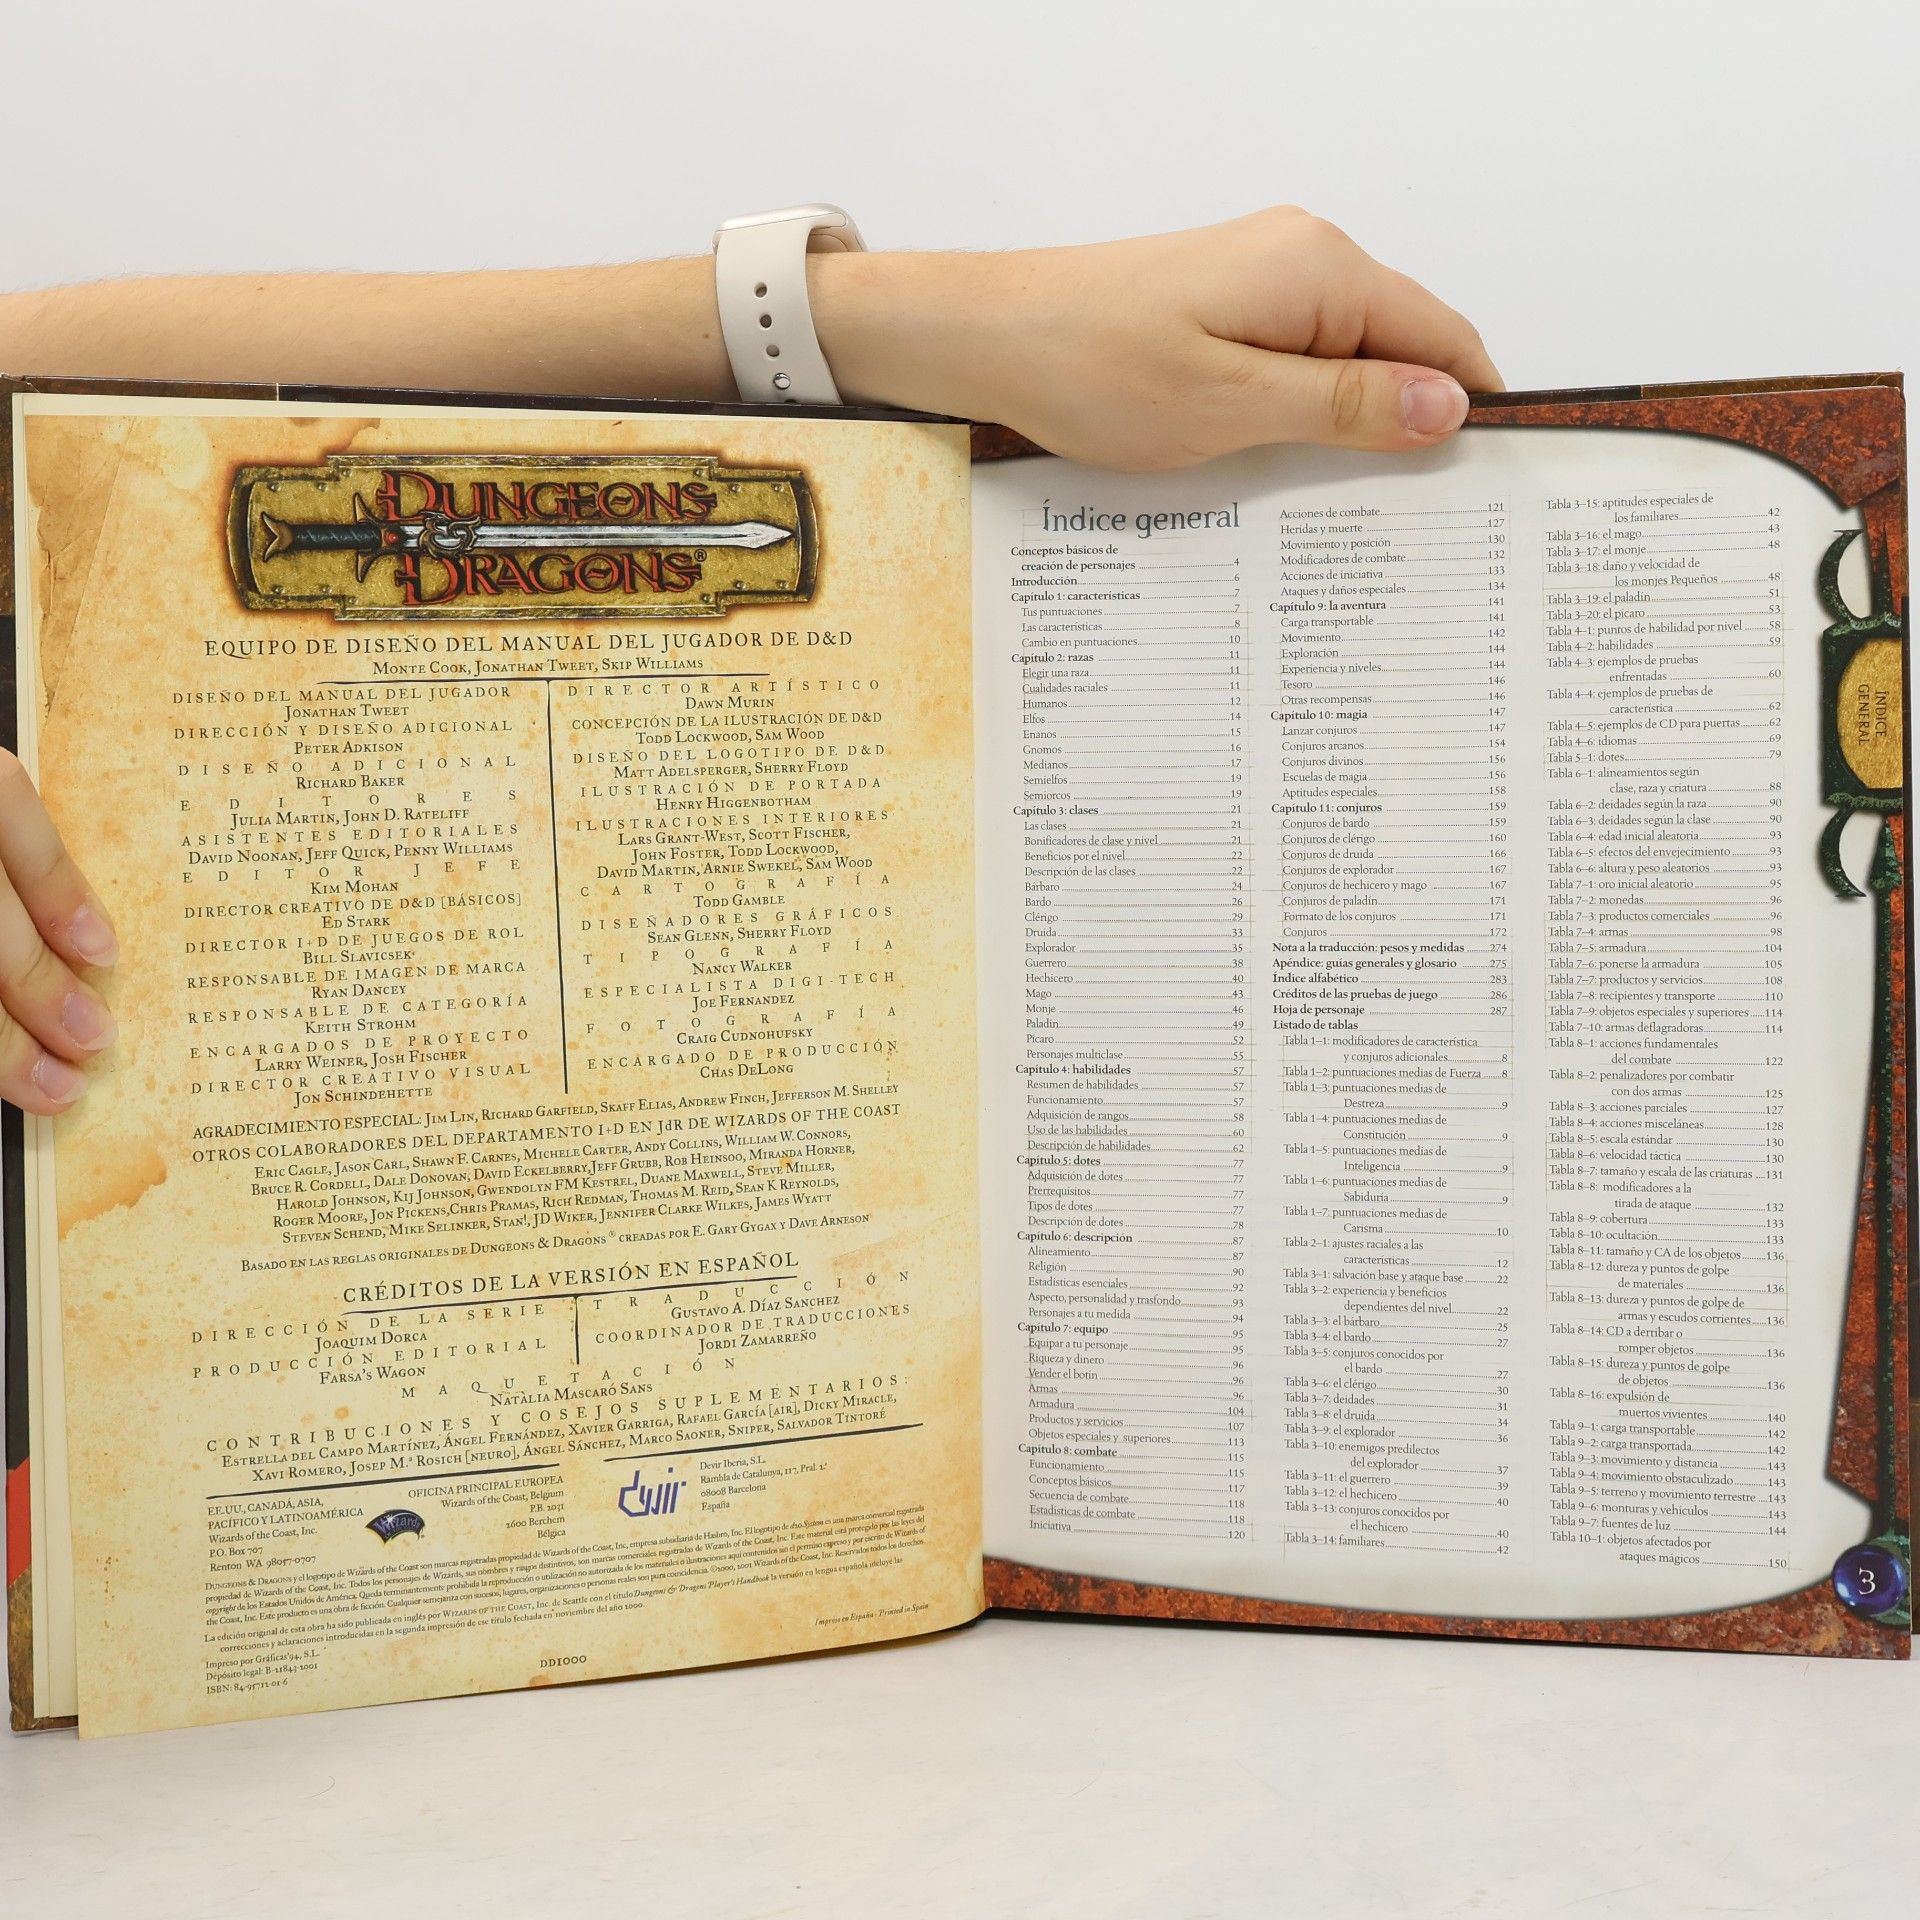 DUNGEONS
&
DRAGONS®
EQUIPO DE DISEÑO DEL MANUAL DEL JUGADOR DE D&D
MONTE COOK, JONATHAN TWEET, SKIP WILLIAMS
DISEÑO DEL MANUAL DEL JUGADOR
JONATHAN TWEET
DIRECCIÓN Y DISEÑO ADICIONAL
PETER ADKISON
DISEÑO ADICIONAL
RICHARD BAKER
EDITORES
JULIA MARTIN, JOHN D. RATELIFF
ASISTENTES EDITORIALES
DAVID NOONAN, JEFF QUICK, PENNY WILLIAMS
EDITOR JEFE
KIM MOHAN
DIRECTOR CREATIVO DE D&D [BÁSICOS]
ED STARK
DIRECTOR I+D DE JUEGOS DE ROL
BILL SLAVICSEK
RESPONSABLE DE IMAGEN DE MARCA
RYAN DANCEY
RESPONSABLE DE CATEGORÍA
KEITH STROHM
ENCARGADOS DE PROYECTO
LARRY WEINER, JOSH FISCHER
DIRECTOR CREATIVO VISUAL
JON SCHINDEHETTE
DIRECTOR ARTÍSTICO
DAWN MURIN
CONCEPCIÓN DE LA ILUSTRACIÓN DE D&D
TODD LOCKWOOD, SAM WOOD
DISEÑO DEL LOGOTIPO DE D&D
MATT ADELSPERGER, SHERRY FLOYD
ILUSTRACIÓN DE PORTADA
HENRY HIGGENBOTHAM
ILUSTRACIONES INTERIORES
LARS GRANT-WEST, SCOTT FISCHER,
JOHN FOSTER, TODD LOCKWOOD,
DAVID MARTIN, ARNIE SWEKEL, SAM WOOD
CARTOGRAFÍA
TODD GAMBLE
DISEÑADORES GRÁFICOS
SEAN GLENN, SHERRY FLOYD
TIPOGRAFÍA
NANCY WALKER
ESPECIALISTA DIGI-TECH
JOE FERNANDEZ
FOTOGRAFÍA
CRAIG CUDNOHUFSKY
ENCARGADO DE PRODUCCIÓN
CHAS DELONG
AGRADECIMIENTO ESPECIAL: JIM LIN, RICHARD GARFIELD, SKAFF ELIAS, ANDREW FINCH, JEFFERSON M. SHELLEY
OTROS COLABORADORES DEL DEPARTAMENTO I+D EN JdR DE WIZARDS OF THE COAST
ERIC CAGLE, JASON CARL, SHAWN F. CARNES, MICHELE CARTER, ANDY COLLINS, WILLIAM W. CONNORS,
BRUCE R. CORDELL, DALE DONOVAN, DAVID ECKELBERRY, JEFF GRUBB, ROB HEINSOO, MIRANDA HORNER,
HAROLD JOHNSON, KIJ JOHNSON, GWENDOLYN FM KESTREL, DUANE MAXWELL, STEVE MILLER,
ROGER MOORE, JON PICKENS, CHRIS PRAMAS, RICH REDMAN, THOMAS M. REID, SEAN K REYNOLDS,
STEVEN SCHEND, MIKE SELINKER, STAN!, JD WIKER, JENNIFER CLARKE WILKES, JAMES WYATT
BASADO EN LAS REGLAS ORIGINALES DE DUNGEONS & DRAGONS® CREADAS POR E. GARY GYGAX Y DAVE ARNESON
CRÉDITOS DE LA VERSIÓN EN ESPAÑOL
DIRECCIÓN DE LA SERIE
JOAQUIM DORCA
PRODUCCIÓN EDITORIAL
FARSA'S WAGON
TRADUCCIÓN
GUSTAVO A. DÍAZ SANCHEZ
COORDINADOR DE TRADUCCIONES
JORDI ZAMARREÑO
MAQUETACIÓN
NATÀLIA MASCARÓ SANS
CONTRIBUCIONES Y COSEJOS SUPLEMENTARIOS:
ESTRELLA DEL CAMPO MARTÍNEZ, ÁNGEL FERNÁNDEZ, XAVIER GARRIGA, RAFAEL GARCÍA [AIR], DICKY MIRACLE,
XAVI ROMERO, JOSEP M.ª ROSICH [NEURO], ÁNGEL SÁNCHEZ, MARCO SAONER, SNIPER, SALVADOR TINTORÉ
EE.UU., CANADÁ, ASIA,
PACÍFICO Y LATINOAMÉRICA
Wizards of the Coast, Inc.
P.O. Box 707
Renton WA 98057-0707
Wizards
OFICINA PRINCIPAL EUROPEA
Wizards of the Coast, Belgium
P.B. 2031
2600 Berchem
Bélgica
devir
Devir Iberia, S.L.
Rambla de Catalunya, 117, Pral. 2ª
08008 Barcelona
España
DUNGEONS & DRAGONS y el logotipo de Wizards of the Coast son marcas registradas propiedad de Wizards of the Coast, Inc, empresa subsidiaria de Hasbro, Inc. El logotipo de d20 System es una marca comercial registrada
propiedad de Wizards of the Coast, Inc. Todos los personajes de Wizards, sus nombres y rasgos distintivos, son marcas comerciales registradas de Wizards of the Coast, Inc. Este material está protegido por las leyes del
copyright de los Estados Unidos de América. Queda terminantemente prohibida la reproducción o utilización no autorizada de los materiales o ilustraciones aquí contenidos sin el permiso expreso y por escrito de Wizards of
the Coast, Inc. Este producto es una obra de ficción. Cualquier semejanza con sucesos, lugares, organizaciones o personas reales son pura coincidencia. ©2000, 2001 Wizards of the Coast, Inc. Reservados todos los derechos.
La edición original de esta obra ha sido publicada en inglés por WIZARDS OF THE COAST, Inc. de Seattle con el título Dungeons & Dragons Player's Handbook la versión en lengua española incluye las
correcciones y aclaraciones introducidas en la segunda impresión de ese título fechada en noviembre del año 2000.
Impreso por Gráficas'94, S.L.
Depósito legal: B-21843-2001
ISBN: 84-95712-01-6
DD1000
Impreso en España - Printed in Spain
Índice general
Conceptos básicos de
creación de personajes 4
Introducción 6
Capítulo 1: características 7
Tus puntuaciones 7
Las características 8
Cambio en puntuaciones 10
Capítulo 2: razas 11
Elegir una raza 11
Cualidades raciales 11
Humanos 12
Elfos 14
Enanos 15
Gnomos 16
Medianos 17
Semielfos 19
Semiorcos 19
Capítulo 3: clases 21
Las clases 21
Bonificadores de clase y nivel 21
Beneficios por el nivel 22
Descripción de las clases 22
Bárbaro 24
Bardo 26
Clérigo 29
Druida 33
Explorador 35
Guerrero 38
Hechicero 40
Mago 43
Monje 46
Paladín 49
Pícaro 52
Personajes multiclase 55
Capítulo 4: habilidades 57
Resumen de habilidades 57
Funcionamiento 57
Adquisición de rangos 58
Uso de las habilidades 60
Descripción de habilidades 62
Capítulo 5: dotes 77
Adquisición de dotes 77
Prerrequisitos 77
Tipos de dotes 77
Descripción de dotes 78
Capítulo 6: descripción 87
Alineamiento 87
Religión 90
Estadísticas esenciales 92
Aspecto, personalidad y trasfondo 93
Personajes a tu medida 94
Capítulo 7: equipo 95
Equipar a tu personaje 95
Riqueza y dinero 96
Vender el botín 96
Armas 96
Armadura 104
Productos y servicios 107
Objetos especiales y superiores 113
Capítulo 8: combate 115
Funcionamiento 115
Conceptos básicos 117
Secuencia de combate 118
Estadísticas de combate 118
Iniciativa 120
Acciones de combate 121
Heridas y muerte 127
Movimiento y posición 130
Modificadores de combate 132
Acciones de iniciativa 133
Ataques y daños especiales 134
Capítulo 9: la aventura 141
Carga transportable 141
Movimiento 142
Exploración 144
Experiencia y niveles 144
Tesoro 146
Otras recompensas 146
Capítulo 10: magia 147
Lanzar conjuros 147
Conjuros arcanos 154
Conjuros divinos 156
Escuelas de magia 156
Aptitudes especiales 158
Capítulo 11: conjuros 159
Conjuros de bardo 159
Conjuros de clérigo 160
Conjuros de druida 166
Conjuros de explorador 167
Conjuros de hechicero y mago 167
Conjuros de paladín 171
Formato de los conjuros 171
Conjuros 172
Nota a la traducción: pesos y medidas 274
Apéndice: guías generales y glosario 275
Índice alfabético 283
Créditos de las pruebas de juego 286
Hoja de personaje 287
Listado de tablas
Tabla 1–1: modificadores de característica
y conjuros adicionales 8
Tabla 1–2: puntuaciones medias de Fuerza 8
Tabla 1–3: puntuaciones medias de
Destreza 9
Tabla 1–4: puntuaciones medias de
Constitución 9
Tabla 1–5: puntuaciones medias de
Inteligencia 9
Tabla 1–6: puntuaciones medias de
Sabiduría 9
Tabla 1–7: puntuaciones medias de
Carisma 10
Tabla 2–1: ajustes raciales a las
características 12
Tabla 3–1: salvación base y ataque base 22
Tabla 3–2: experiencia y beneficios
dependientes del nivel 22
Tabla 3–3: el bárbaro 25
Tabla 3–4: el bardo 27
Tabla 3–5: conjuros conocidos por
el bardo 27
Tabla 3–6: el clérigo 30
Tabla 3–7: deidades 31
Tabla 3–8: el druida 34
Tabla 3–9: el explorador 36
Tabla 3–10: enemigos predilectos
del explorador 37
Tabla 3–11: el guerrero 39
Tabla 3–12: el hechicero 40
Tabla 3–13: conjuros conocidos por
el hechicero 40
Tabla 3–14: familiares 42
Tabla 3–15: aptitudes especiales de
los familiares 42
Tabla 3–16: el mago 43
Tabla 3–17: el monje 48
Tabla 3–18: daño y velocidad de
los monjes Pequeños 48
Tabla 3–19: el paladín 51
Tabla 3–20: el pícaro 53
Tabla 4–1: puntos de habilidad por nivel 58
Tabla 4–2: habilidades 59
Tabla 4–3: ejemplos de pruebas
enfrentadas 60
Tabla 4–4: ejemplos de pruebas de
característica 62
Tabla 4–5: ejemplos de CD para puertas 62
Tabla 4–6: idiomas 69
Tabla 5–1: dotes 79
Tabla 6–1: alineamientos según
clase, raza y criatura 88
Tabla 6–2: deidades según la raza 90
Tabla 6–3: deidades según la clase 90
Tabla 6–4: edad inicial aleatoria 93
Tabla 6–5: efectos del envejecimiento 93
Tabla 6–6: altura y peso aleatorios 93
Tabla 7–1: oro inicial aleatorio 95
Tabla 7–2: monedas 96
Tabla 7–3: productos comerciales 96
Tabla 7–4: armas 98
Tabla 7–5: armadura 104
Tabla 7–6: ponerse la armadura 105
Tabla 7–7: productos y servicios 108
Tabla 7–8: recipientes y transporte 110
Tabla 7–9: objetos especiales y superiores 114
Tabla 7–10: armas deflagradoras 114
Tabla 8–1: acciones fundamentales
del combate 122
Tabla 8–2: penalizadores por combatir
con dos armas 125
Tabla 8–3: acciones parciales 127
Tabla 8–4: acciones misceláneas 128
Tabla 8–5: escala estándar 130
Tabla 8–6: velocidad táctica 130
Tabla 8–7: tamaño y escala de las criaturas 131
Tabla 8–8: modificadores a la
tirada de ataque 132
Tabla 8–9: cobertura 133
Tabla 8–10: ocultación 133
Tabla 8–11: tamaño y CA de los objetos 136
Tabla 8–12: dureza y puntos de golpe
de materiales 136
Tabla 8–13: dureza y puntos de golpe de
armas y escudos corrientes 136
Tabla 8–14: CD a derribar o
romper objetos 136
Tabla 8–15: dureza y puntos de golpe
de objetos 136
Tabla 8–16: expulsión de
muertos vivientes 140
Tabla 9–1: carga transportable 142
Tabla 9–2: carga transportada 142
Tabla 9–3: movimiento y distancia 143
Tabla 9–4: movimiento obstaculizado 143
Tabla 9–5: terreno y movimiento terrestre 143
Tabla 9–6: monturas y vehículos 143
Tabla 9–7: fuentes de luz 144
Tabla 10–1: objetos afectados por
ataques mágicos 150
ÍNDICE
GENERAL
3